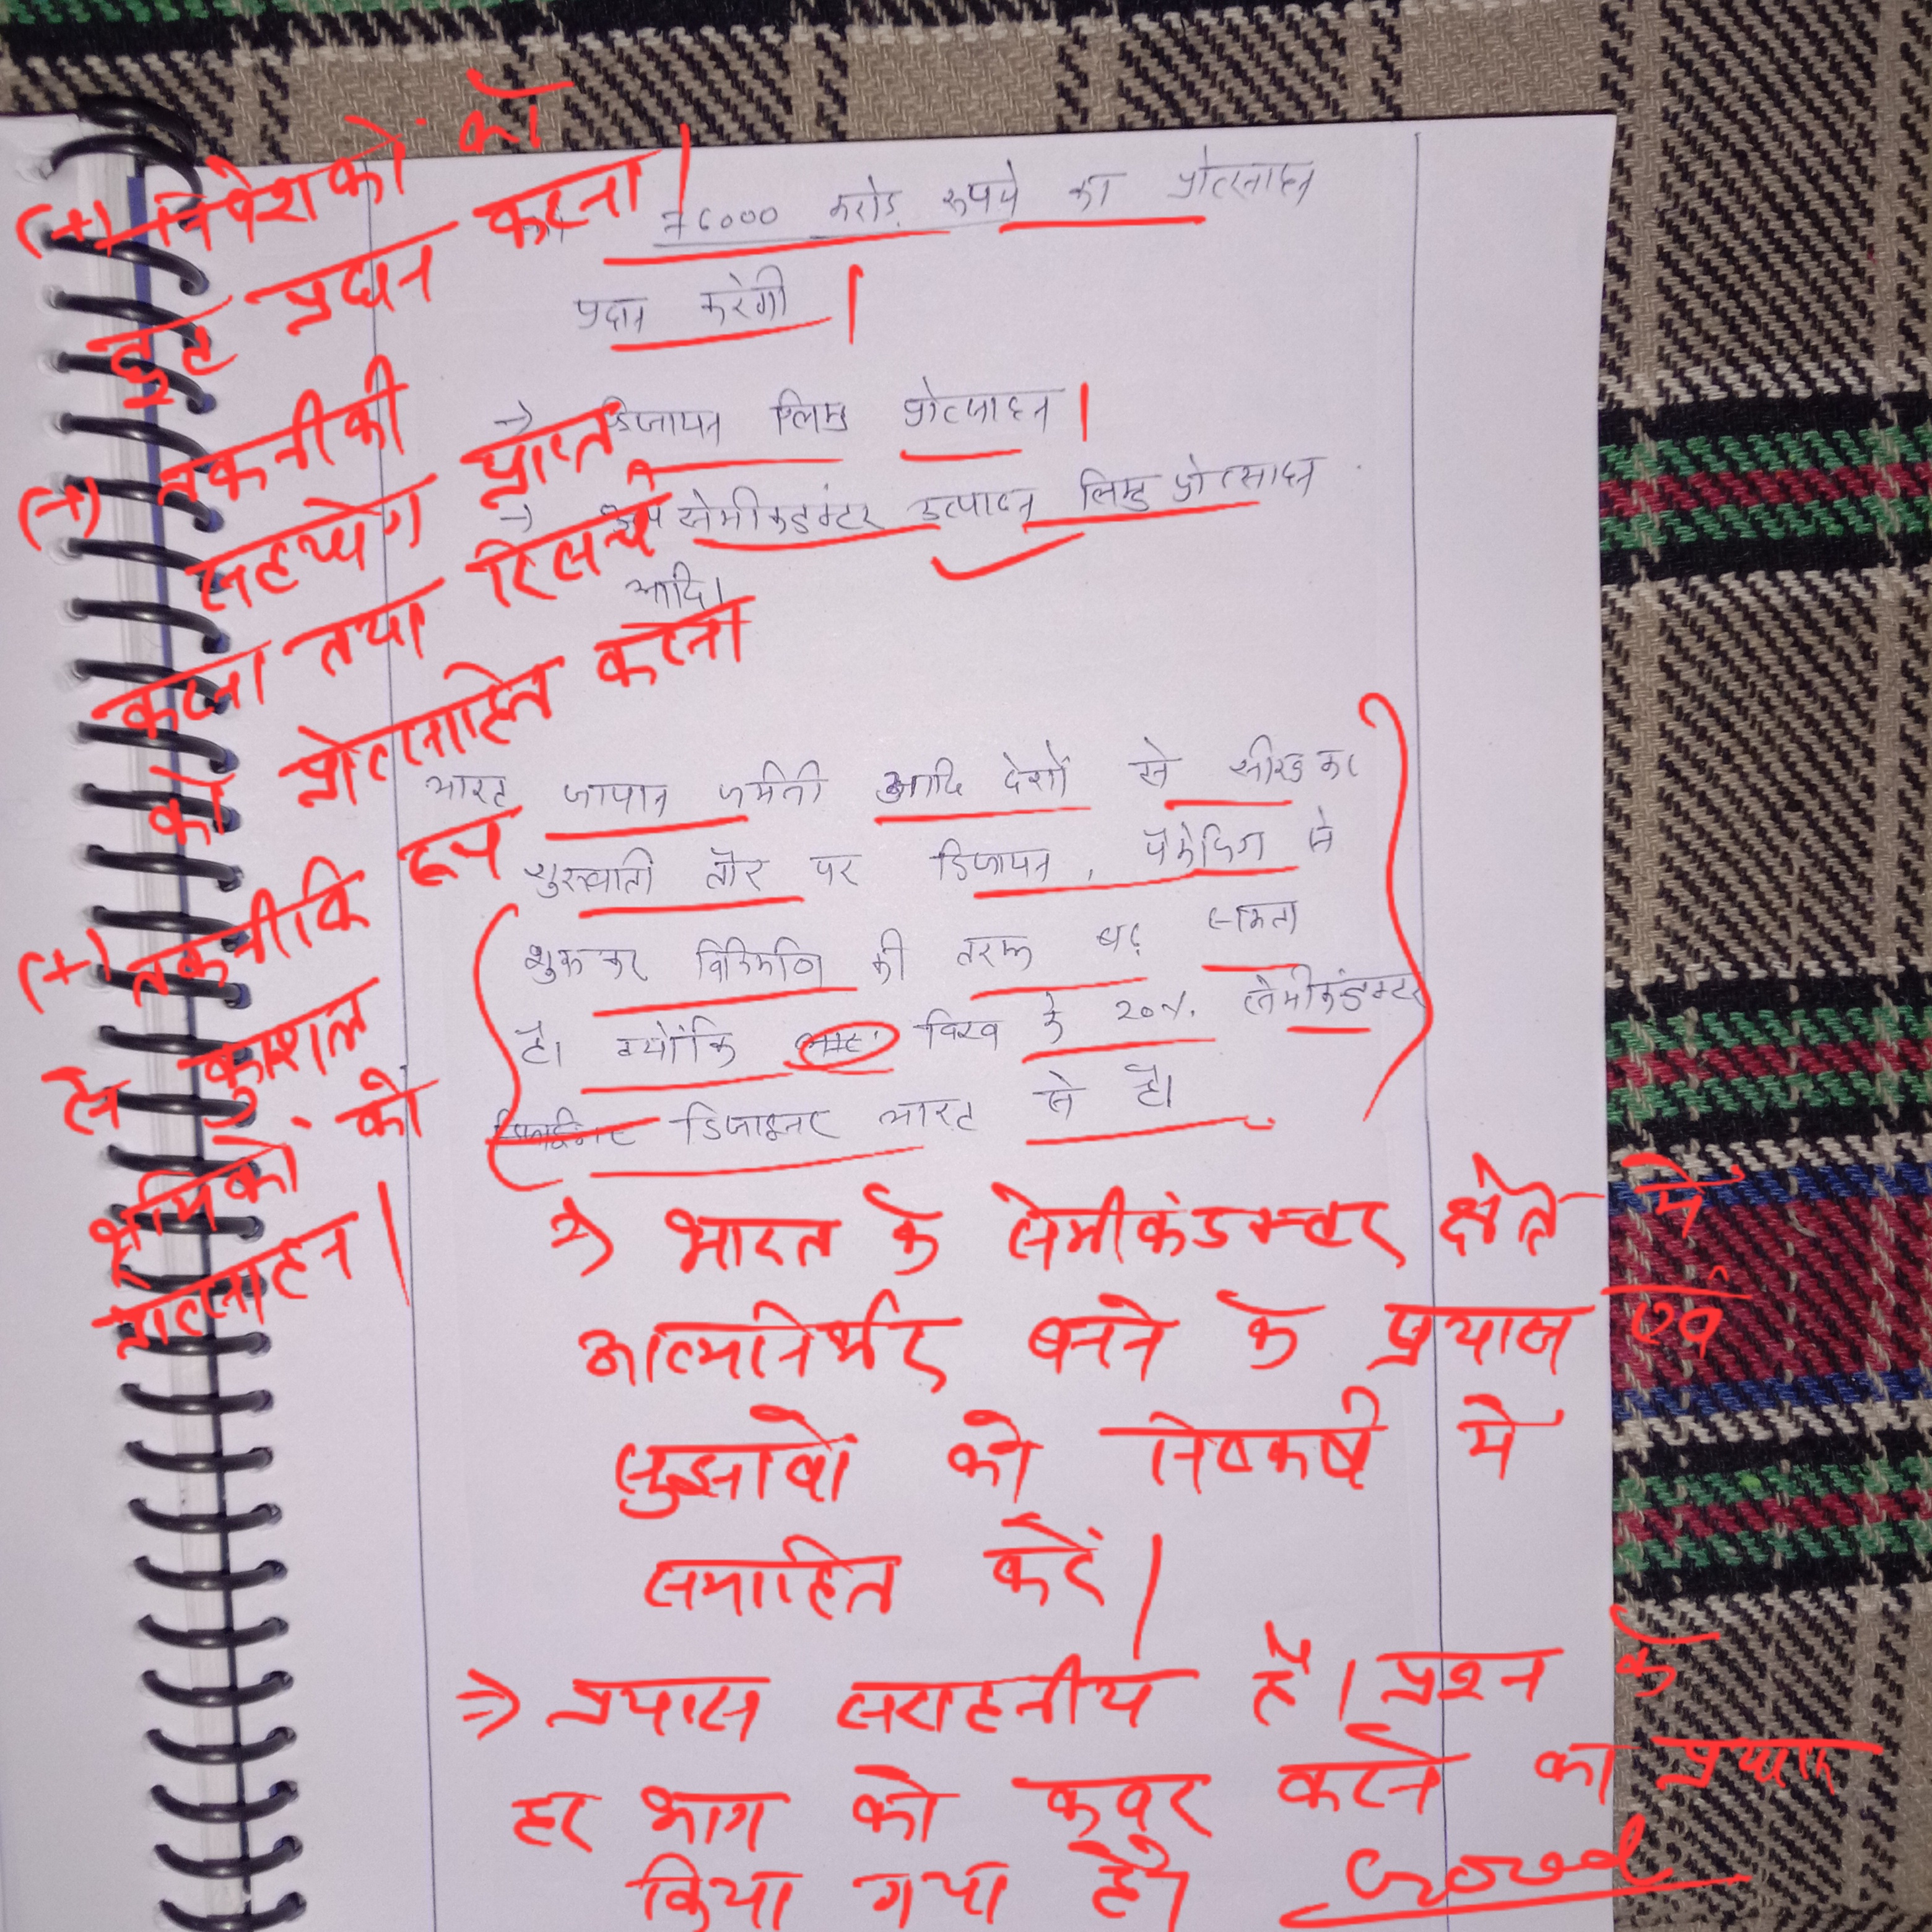 (+) निवेशकों को
छुट प्रदान करना।
(+) तकनीकी
सहयोग प्राप्त
करना तथा रिसर्च
को प्रोत्साहित करना
(+) तकनीकि रूप
से कुशल
श्रमिकों को
प्रोत्साहन।
76000 करोड़ रूपये का प्रोत्साहन
प्रदान करेगी।
→ डिजायन लिंक्ड प्रोत्साहन।
→ सेमीकंडक्टर उत्पादन लिंक्ड प्रोत्साहन
आदि।
भारत जापान जर्मनी आदि देशों से सीखकर
शुरुवाती तौर पर डिजायन, पैकेजिंग से
शुरू कर विनिर्माण की तरफ बढ़ सकता
है। क्योंकि विश्व के 20% सेमीकंडक्टर
डिजाइनर भारत से है।
⇒ भारत के सेमीकंडक्टर क्षेत्र में
आत्मनिर्भर बनने के प्रयास एवं
सुझावों को निष्कर्ष में
समाहित करें।
⇒ प्रयास सराहनीय है। प्रश्न के
हर भाग को कवर करने का प्रयास
किया गया है। Good